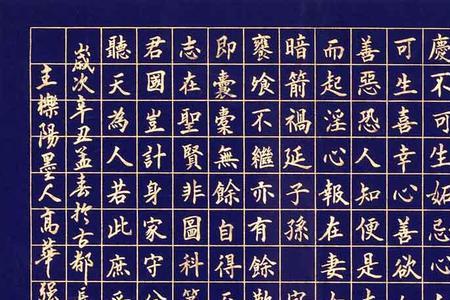 慶不可生妬忌心
可生喜幸心善欲
善惡恐人知便是
而起淫心報在妻
暗箭禍延子孫
饔飧不繼亦有餘
即囊橐無餘自得
志在聖賢非圖科
君國豈計身家守
聽天為人若此庶
歲次辛丑孟春於古都長
主櫟陽墨人高華強